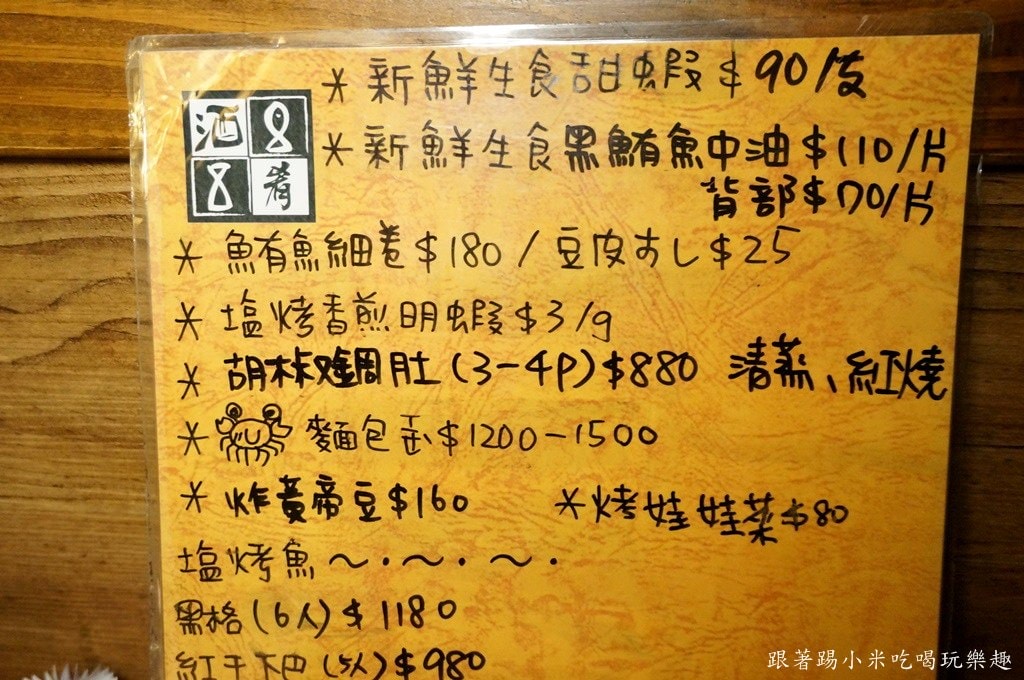 酒8
8肴
* 新鮮生食甜蝦$90/支
* 新鮮生食黑鮪魚中油$110/片
背部$70/片
* 鮪魚細卷$180/豆皮すし$25
* 塩烤香煎明蝦$3/g
* 胡椒雞鋼肚(3-4P)$880 清蒸、紅燒
* 麵包蟹$1200-1500
* 炸黃帝豆$160 *烤娃娃菜$80
塩烤魚～.～.～.
黑格(6人)$1180
紅干下巴(5人)$980
跟著踢小米吃喝玩樂趣